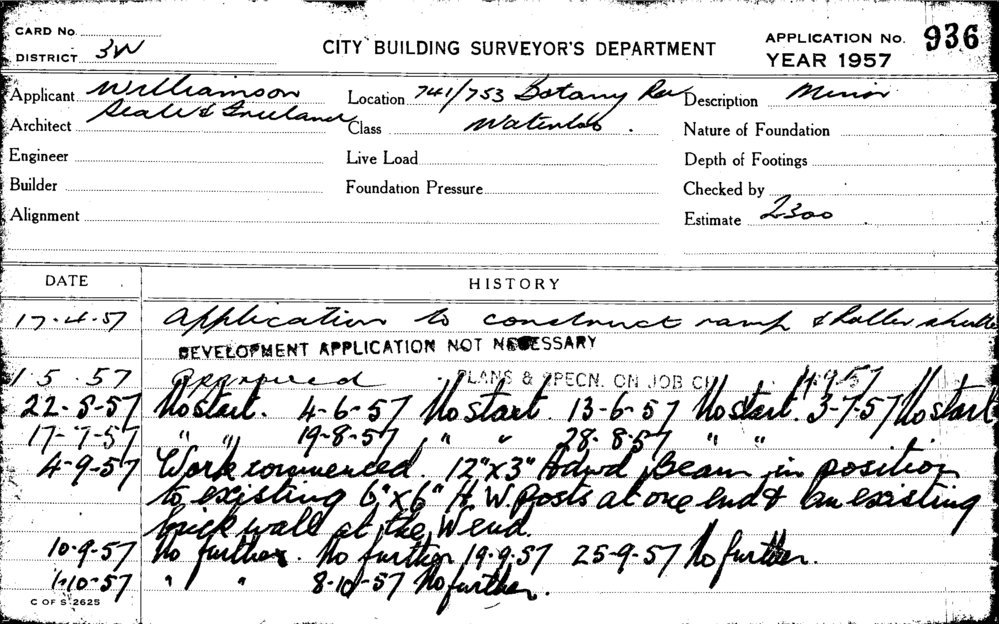 CARD No.
DISTRICT 3W
CITY BUILDING SURVEYOR'S DEPARTMENT
APPLICATION No. 936
YEAR 1957
Applicant Williamson
Location 741/753 Botany Rd
Description Minor
Architect Seale &
Class Waterloo.
Nature of Foundation
Engineer
Live Load
Depth of Footings
Builder
Foundation Pressure
Checked by
Alignment
Estimate 2300
DATE HISTORY
17-4-57 Application to construct ramp & Roller shutter
DEVELOPMENT APPLICATION NOT NECESSARY
1.5.57 Approved PLANS & SPECN. ON JOB 4.9.57
22-5-57 No start. 4-6-57 No start. 13-6-57 No start. 3-7-57 No start
17-7-57 " " 19-8-57 " " 28-8-57 " "
4-9-57 Work commenced. 12"x3" Hdwd Beam in position
to existing 6"x6" H.W. Posts at one end & an existing
brick wall at the W end.
10-9-57 No further. No further 19.9.57 25-9-57 No further.
1-10-57 " " 8-10-57 No further.
C OF S 2625